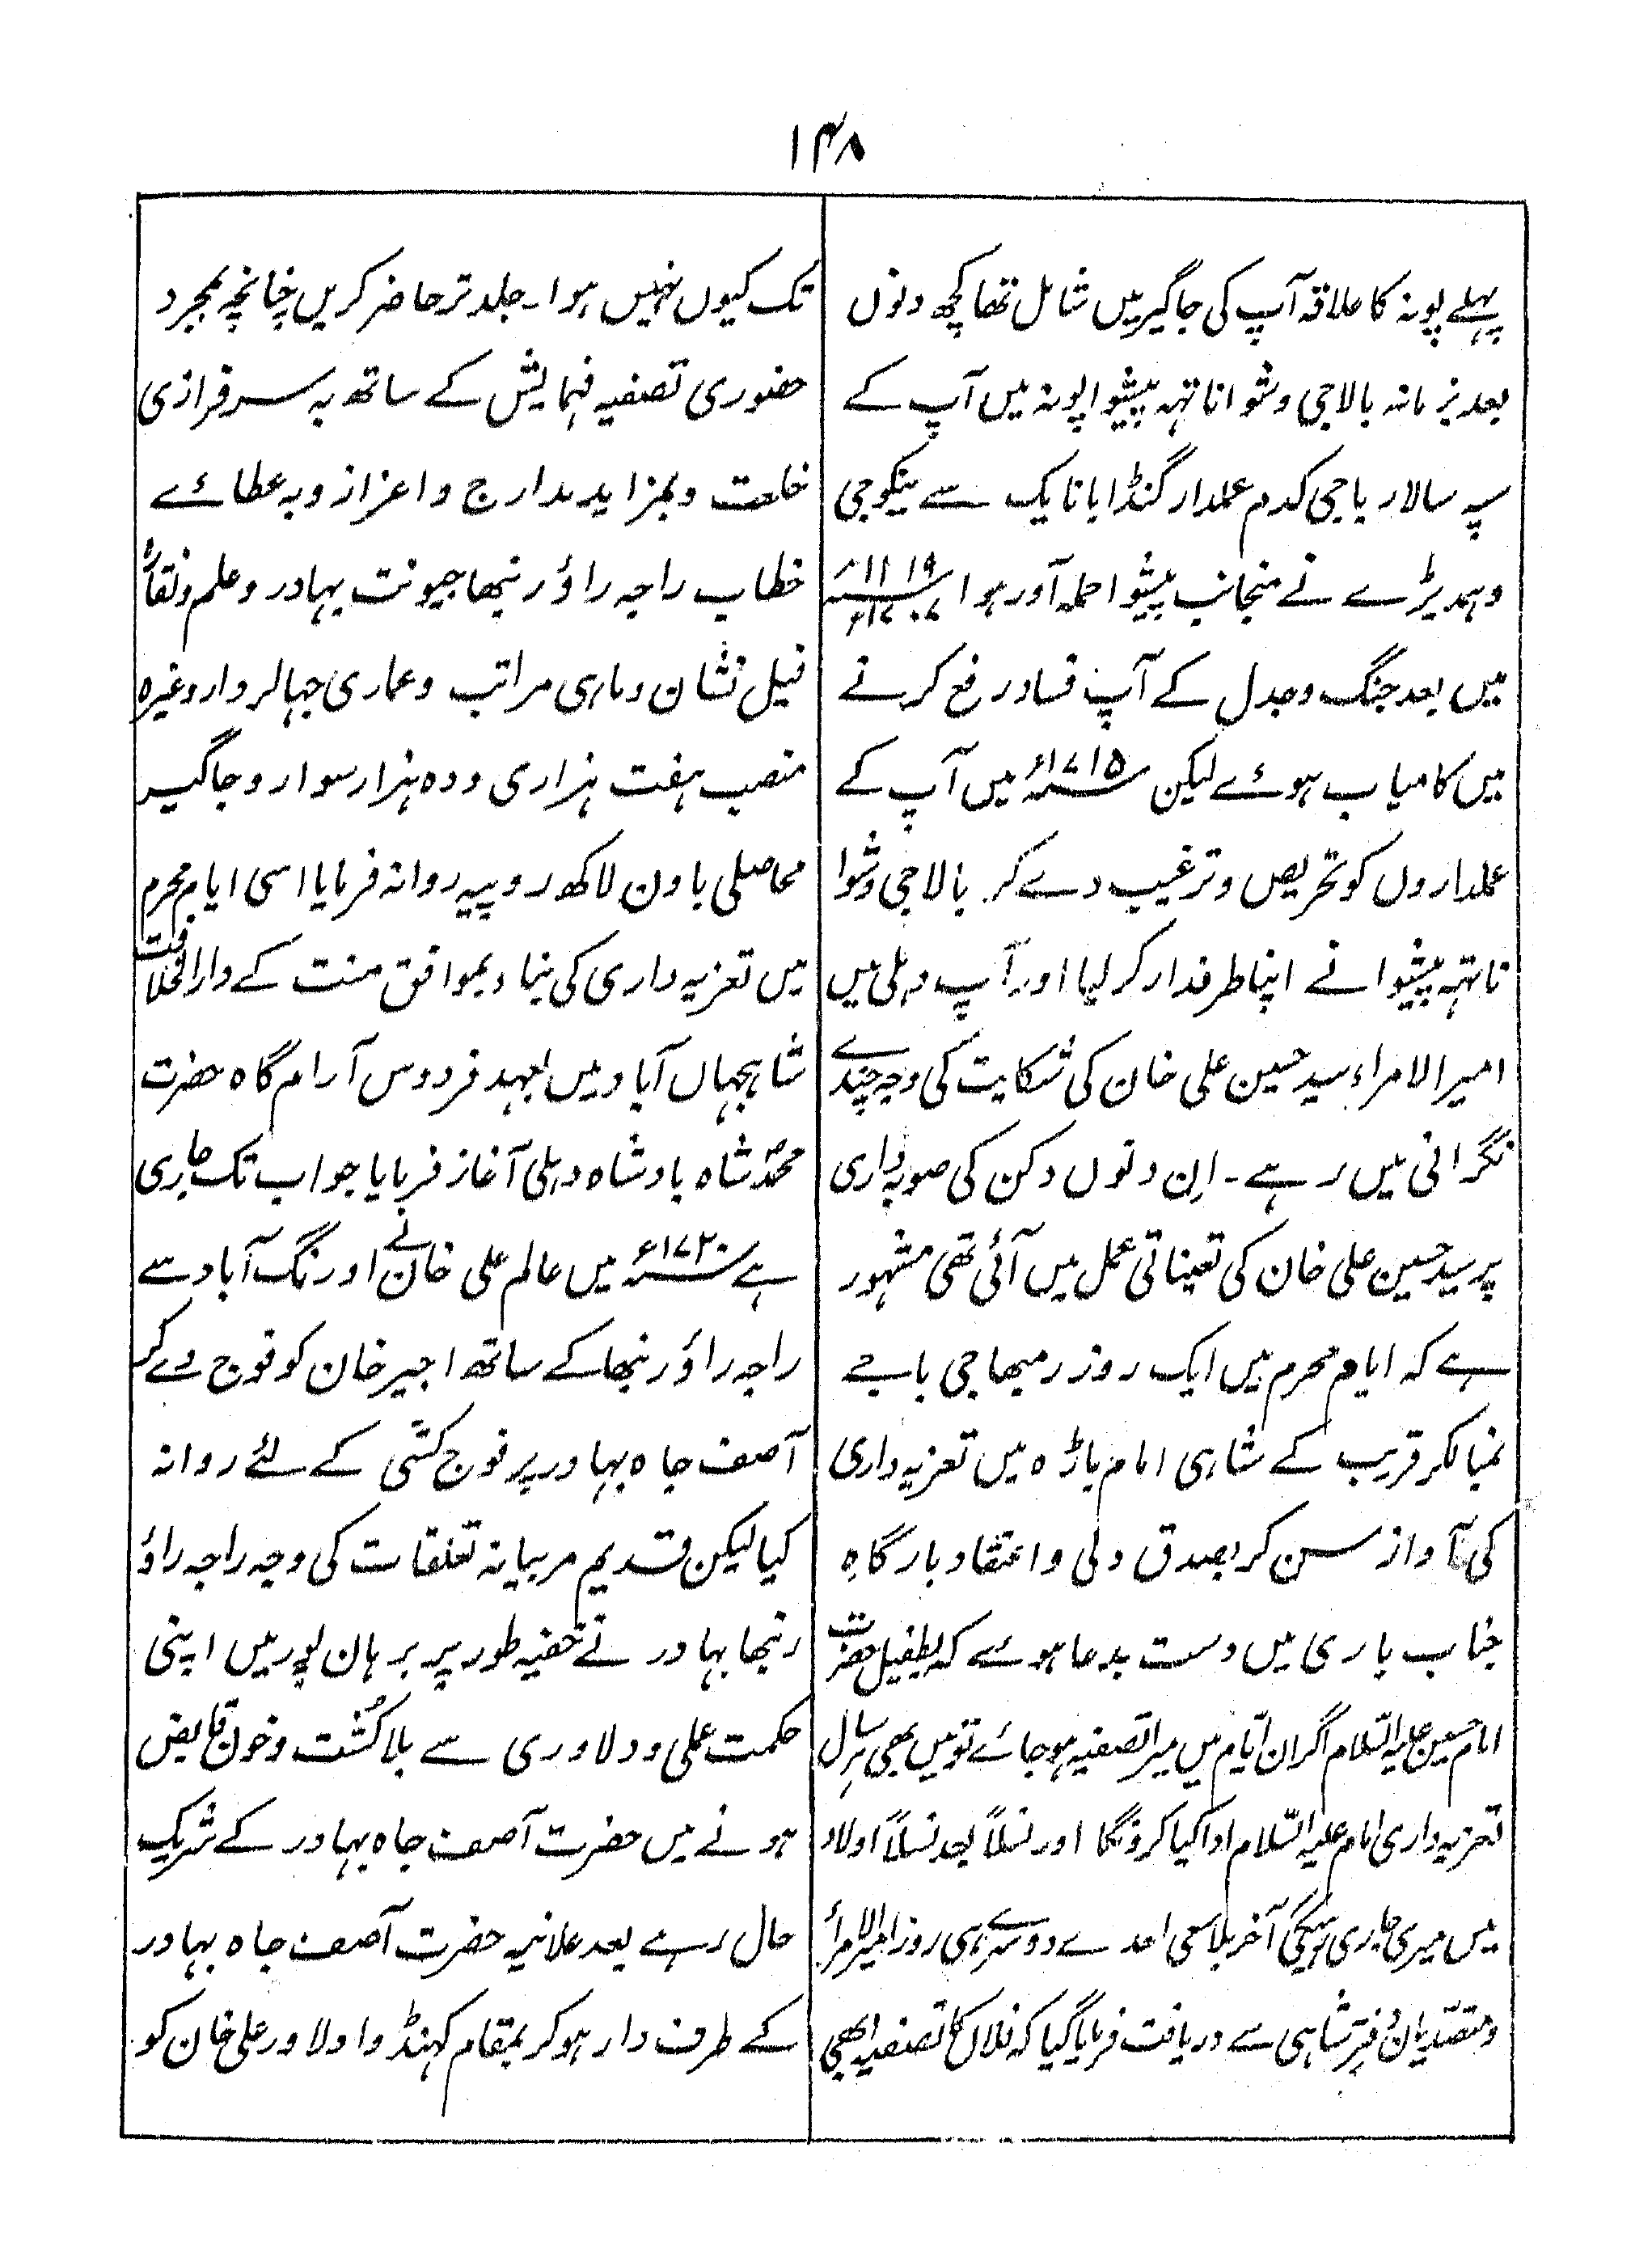 ۱۴۸
پہلے پونہ کا علاقہ آپ کی جاگیر میں شامل تھا کچھ دنوں
بعد بزمانہ بالاجی وشواناتہہ پیشوا پونہ میں آپ کے
سپہ سالار باجی کدم عملدار گنڈابا نایک سے پنکوجی
دہمدیڑے نے منجانب پیشوا حملہ آور ہوا ۱۱۱۹ھ ۱۷۰۷ء
میں بعد جنگ وجدل کے آپ فساد رفع کرنے
میں کامیاب ہوئے لیکن ۱۷۱۵ء میں آپ کے
عملداروں کو تحریص وترغیب دے کر بالاجی وشوا
ناتہہ پیشوا نے اپنا طرفدار کر لیا اور آپ دہلی میں
امیرالامراء سید حسین علی خان کی شکایت کی وجہ چندے
نگرانی میں رہے۔ ان دنوں دکن کی صوبہ داری
پر سید حسین علی خان کی تعیناتی عمل میں آئی تھی مشہور
ہے کہ ایام محرم میں ایک روز رمبھاجی باجے
نمبالکر قریب کے شاہی امام باڑہ میں تعزیہ داری
کی آواز سن کر بصدق دلی واعتقاد بارگاہِ
جناب باری میں دست بدعا ہوئے کہ بطفیل حضرت
امام حسین علیہ السّلام اگر ان ایّام میں میرا تصفیہ ہوجائے تو میں بھی ہر سال
تعزیہ داری امام علیہ السّلام ادا کیا کرونگا اور نسلاً بعد نسلاً اولاد
میں میری جاری رہیگی آخر بلا سعی احدے دوسرے ہی روز امیرالامرأ
ومتصدّیان دفتر شاہی سے دریافت فرمایا گیا کہ فلاں کا تصفیہ ابھی
تک کیوں نہیں ہوا۔ جلد تر حاضر کریں چنانچہ بمجرد
حضوری تصفیہ فہمایش کے ساتھ بہ سرفرازی
خلعت وبمزاید مدارج واعزاز وبہ عطائے
خطاب راجہ راؤ رنبھا جیونت بہادر وعلم ونقارہ
فیل نشان وماہی مراتب وعماری جہالردار وغیرہ
منصب ہفت ہزاری ودہ ہزار سوار وجاگیر
محاصلی باون لاکھ روپیہ روانہ فرمایا اسی ایام محرم
میں تعزیہ داری کی بناء بموافق منت کے دارالخلافت
شاہجہاں آباد میں بعہد فردوس آرام گاہ حضرت
محمّد شاہ بادشاہ دہلی آغاز فرمایا جو اب تک جاری
ہے ۱۷۲۰ء میں عالم علی خان نے اورنگ آباد سے
راجہ راؤ رنبھا کے ساتھ اجیر خان کو فوج دے کر
آصف جاہ بہادر پر فوج کشی کے لئے روانہ
کیا لیکن قدیم مربیانہ تعلقات کی وجہ راجہ راؤ
رنبھا بہادر نے خفیہ طور پر برہان پور میں اپنی
حکمت عملی ودلاوری سے بلا کُشت وخون قابض
ہونے میں حضرت آصف جاہ بہادر کے شریک
حال رہے بعد علانیہ حضرت آصف جاہ بہادر
کے طرف دار ہوکر بمقام کہنڈوا دلاور علی خان کو